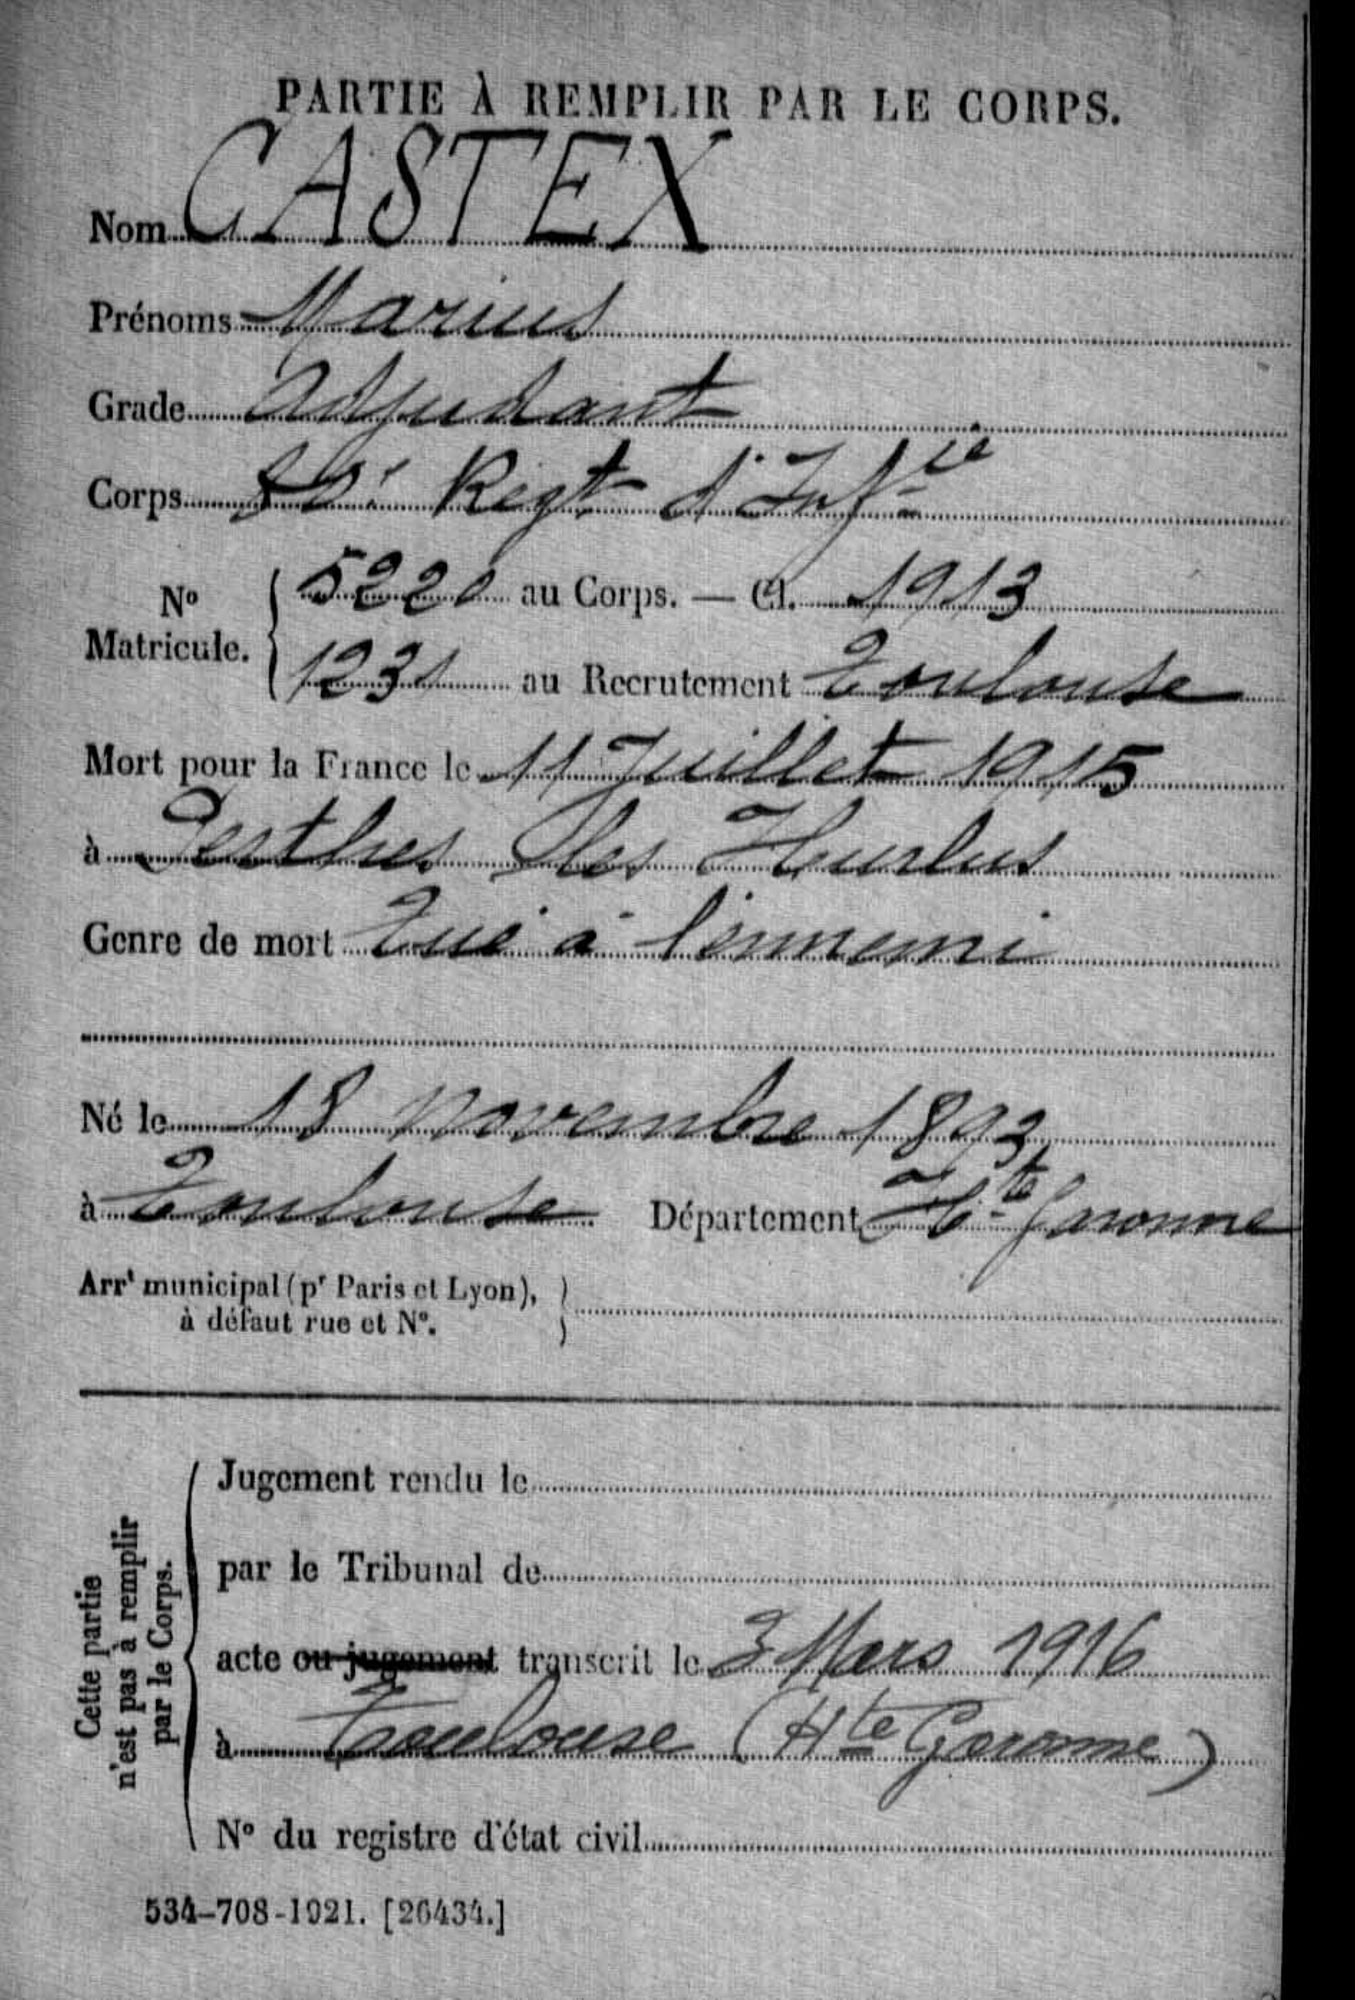 PARTIE À REMPLIR PAR LE CORPS.
Nom CASTEX
Prénoms Marius
Grade adjudant
Corps Regt d'Inf.ie
N° Matricule. 5220 au Corps. — Cl. 1913
1231 au Recrutement Toulouse
Mort pour la France le 11 Juillet 1915
à Perthes les Hurlus
Genre de mort Tué à l'ennemi
Né le 18 novembre 1893
à Toulouse Département Hte Garonne
Arrt municipal (pr Paris et Lyon),
à défaut rue et N°.
Cette partie
n'est pas à remplir
par le Corps.
Jugement rendu le
par le Tribunal de
acte ou jugement transcrit le 3 Mars 1916
à Toulouse (Hte Garonne)
N° du registre d'état civil
534-708-1921. [26434.]